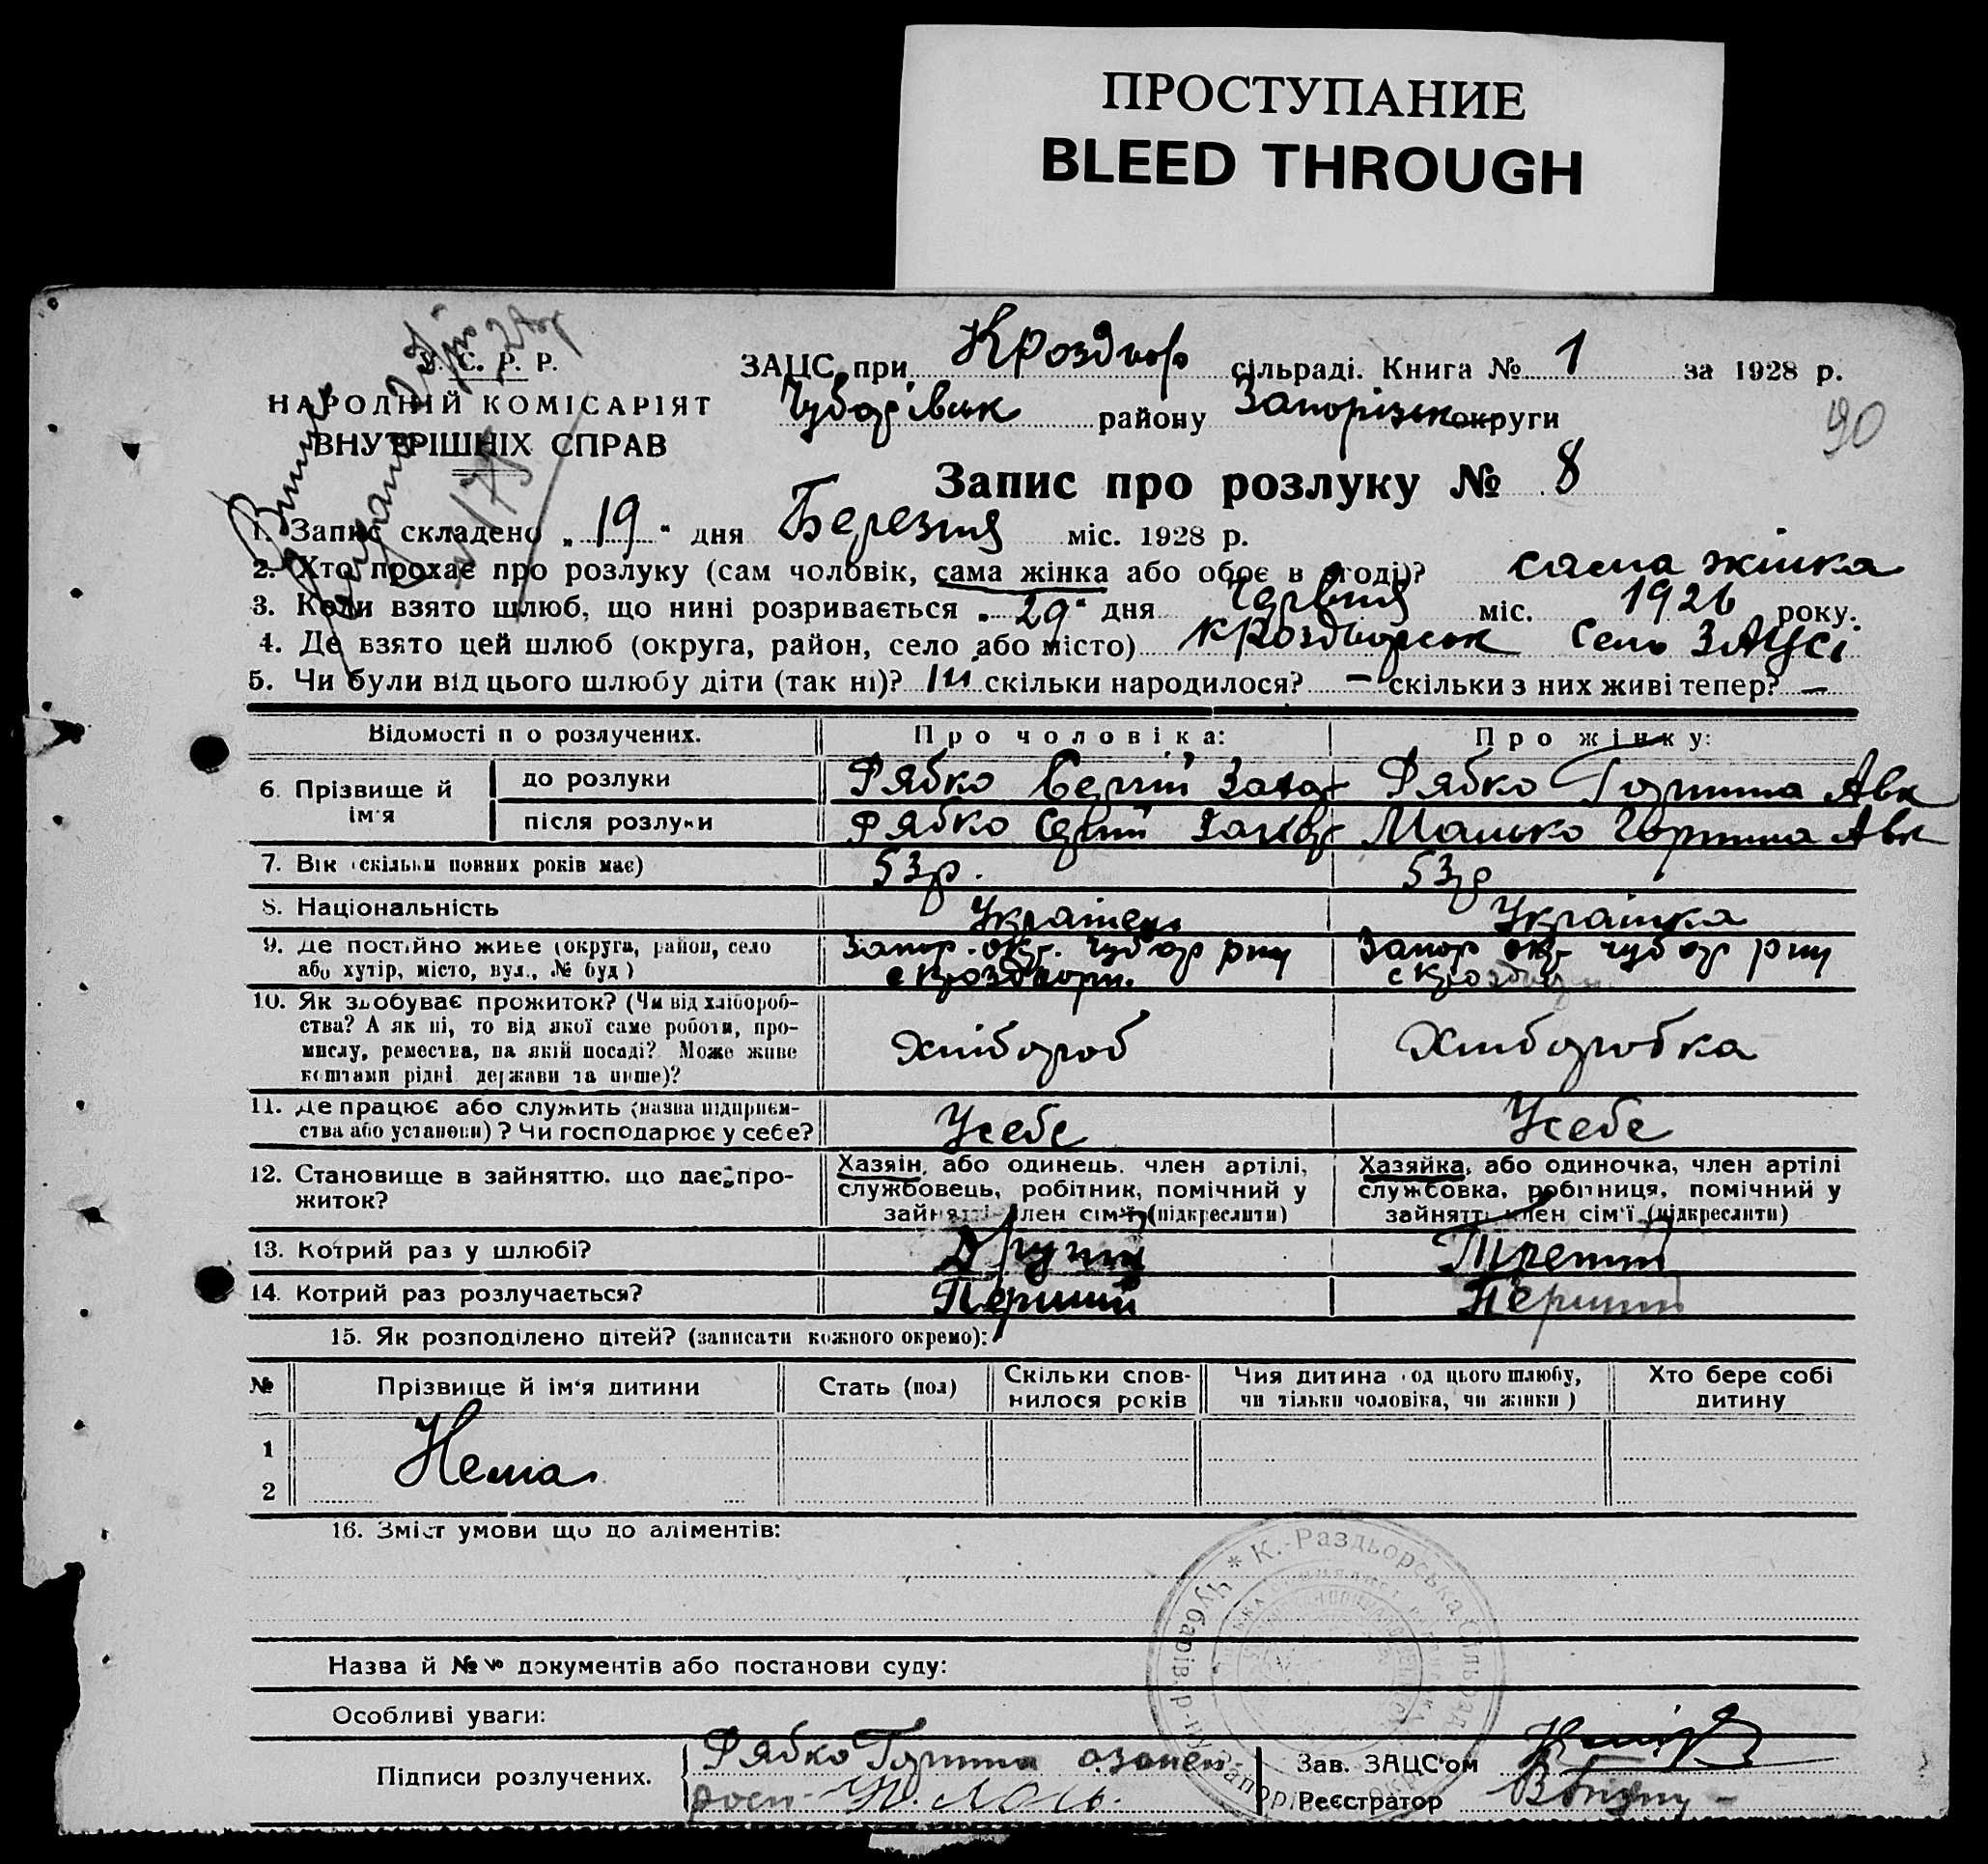 ПРОСТУПАНИЕ
BLEED THROUGH
У. С. Р. Р.
НАРОДНІЙ КОМІСАРІЯТ
ВНУТРІШНІХ СПРАВ
ЗАЦС при Кроздьор сільраді. Книга № 1 за 1928 р.
Чубарівськ району Запорізьк округи
90
Запис про розлуку № 8
1. Запис складено „19“ дня Березня міс. 1928 р.
2. Хто прохає про розлуку (сам чоловік, сама жінка або обоє в згоді)? сама жінка
3. Коли взято шлюб, що нині розривається „29“ дня Червня міс. 1926 року.
4. Де взято цей шлюб (округа, район, село або місто) Кроздьорськ Сель ЗАЦСі
5. Чи були від цього шлюбу діти (так ні)? Ні скільки народилося? — скільки з них живі тепер? —
Відомості п о розлучених. Про чоловіка: Про жінку:
6. Прізвище й ім'я
до розлуки Рябко Сергій Захар Рябко Горпина Авк
після розлуки Рябко Сергій Захар Машко Горпина Авк
7. Вік (скільки повних років має) 53р. 53р
8. Національність Українець Українка
9. Де постійно живе (округа, район, село або хутір, місто, вул., № буд) Запор. окр. Чубар рну с Кроздьори. Запор окр Чубар рну с Кроздьор
10. Як здобуває прожиток? (Чи від хлібороб-
ства? А як ні, то від якої саме роботи, про-
мислу, ремества, на якій посаді? Може живе
коштами рідні держави та инше)? Хлібороб Хліборобка
11. Де працює або служить (назва підприєм-
ства або установи)? Чи господарює у себе? Усебе Усебе
12. Становище в зайняттю, що дає про-
житок?
Хазяін, або одинець, член артілі,
службовець, робітник, помічний у
зайнятті член сім'ї (підкреслити)
Хазяйка, або одиночка, член артілі
службовка, робітниця, помічний у
зайнятті член сім'ї (підкреслити)
13. Котрий раз у шлюбі? Другий Третій
14. Котрий раз розлучається? Перший Перший
15. Як розподілено дітей? (записати кожного окремо):
№ Прізвище й ім'я дитини Стать (пол) Скільки спов-
нилося років Чия дитина (од цього шлюбу,
чи тільки чоловіка, чи жінки) Хто бере собі
дитину
1
Нема
2
16. Зміст умови що до аліментів:
* К.-Раздьорська Сільрада Чубарів. р-ну Запоріз. Окр.
Назва й №№ документів або постанови суду:
Особливі уваги:
Підписи розлучених. Рябко Горпина
росп.
Зав. ЗАЦС'ом
Реєстратор